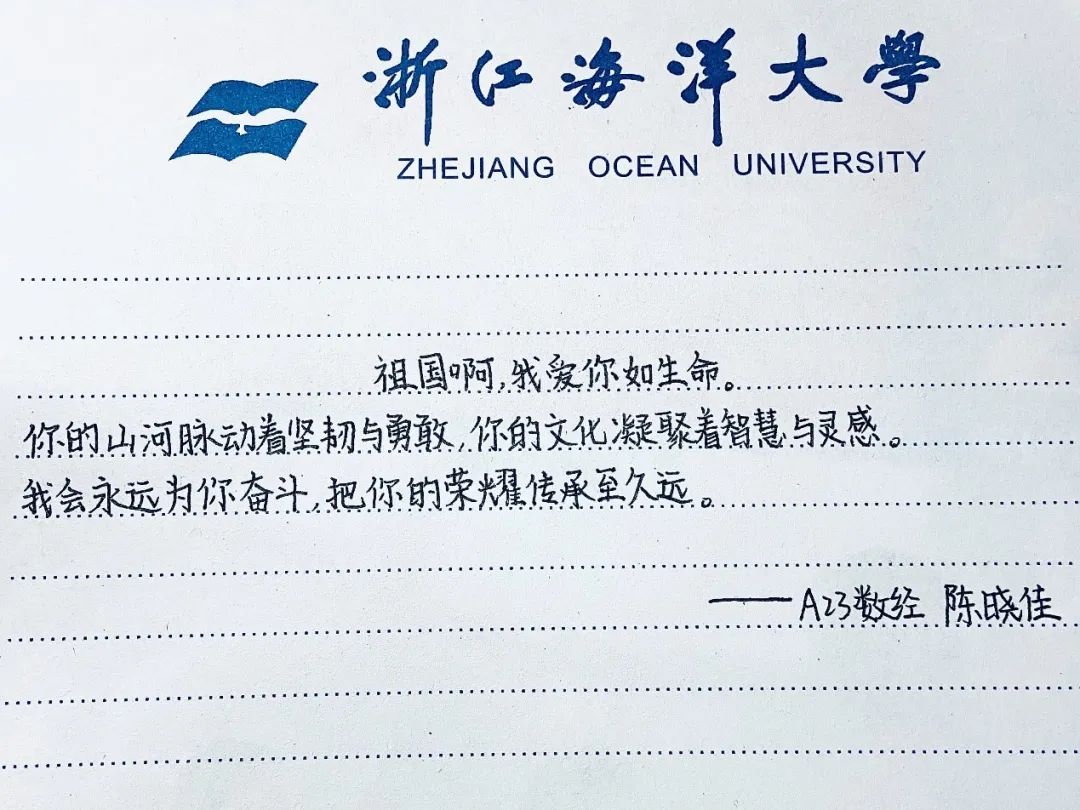 浙江海洋大學
ZHEJIANG OCEAN UNIVERSITY
祖国啊,我爱你如生命。
你的山河脉动着坚韧与勇敢,你的文化凝聚着智慧与灵感。
我会永远为你奋斗,把你的荣耀传承至久远。
——A23数经 陈晓佳